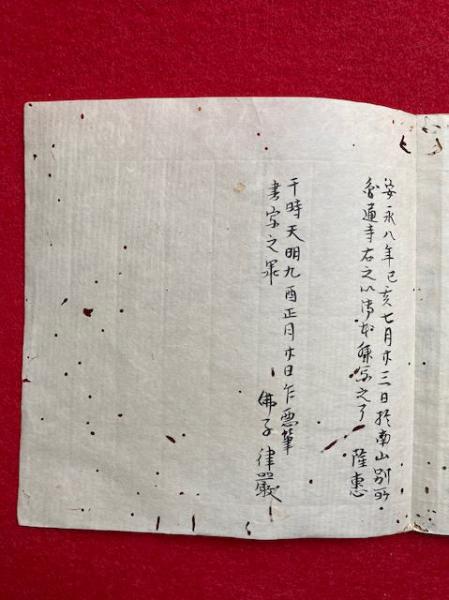 安永八年己亥七月廿三日於南山別所
通寺右之以本写之了 隆恵
于時天明九酉正月廿日乍悪筆
書写之畢 佛子律巖